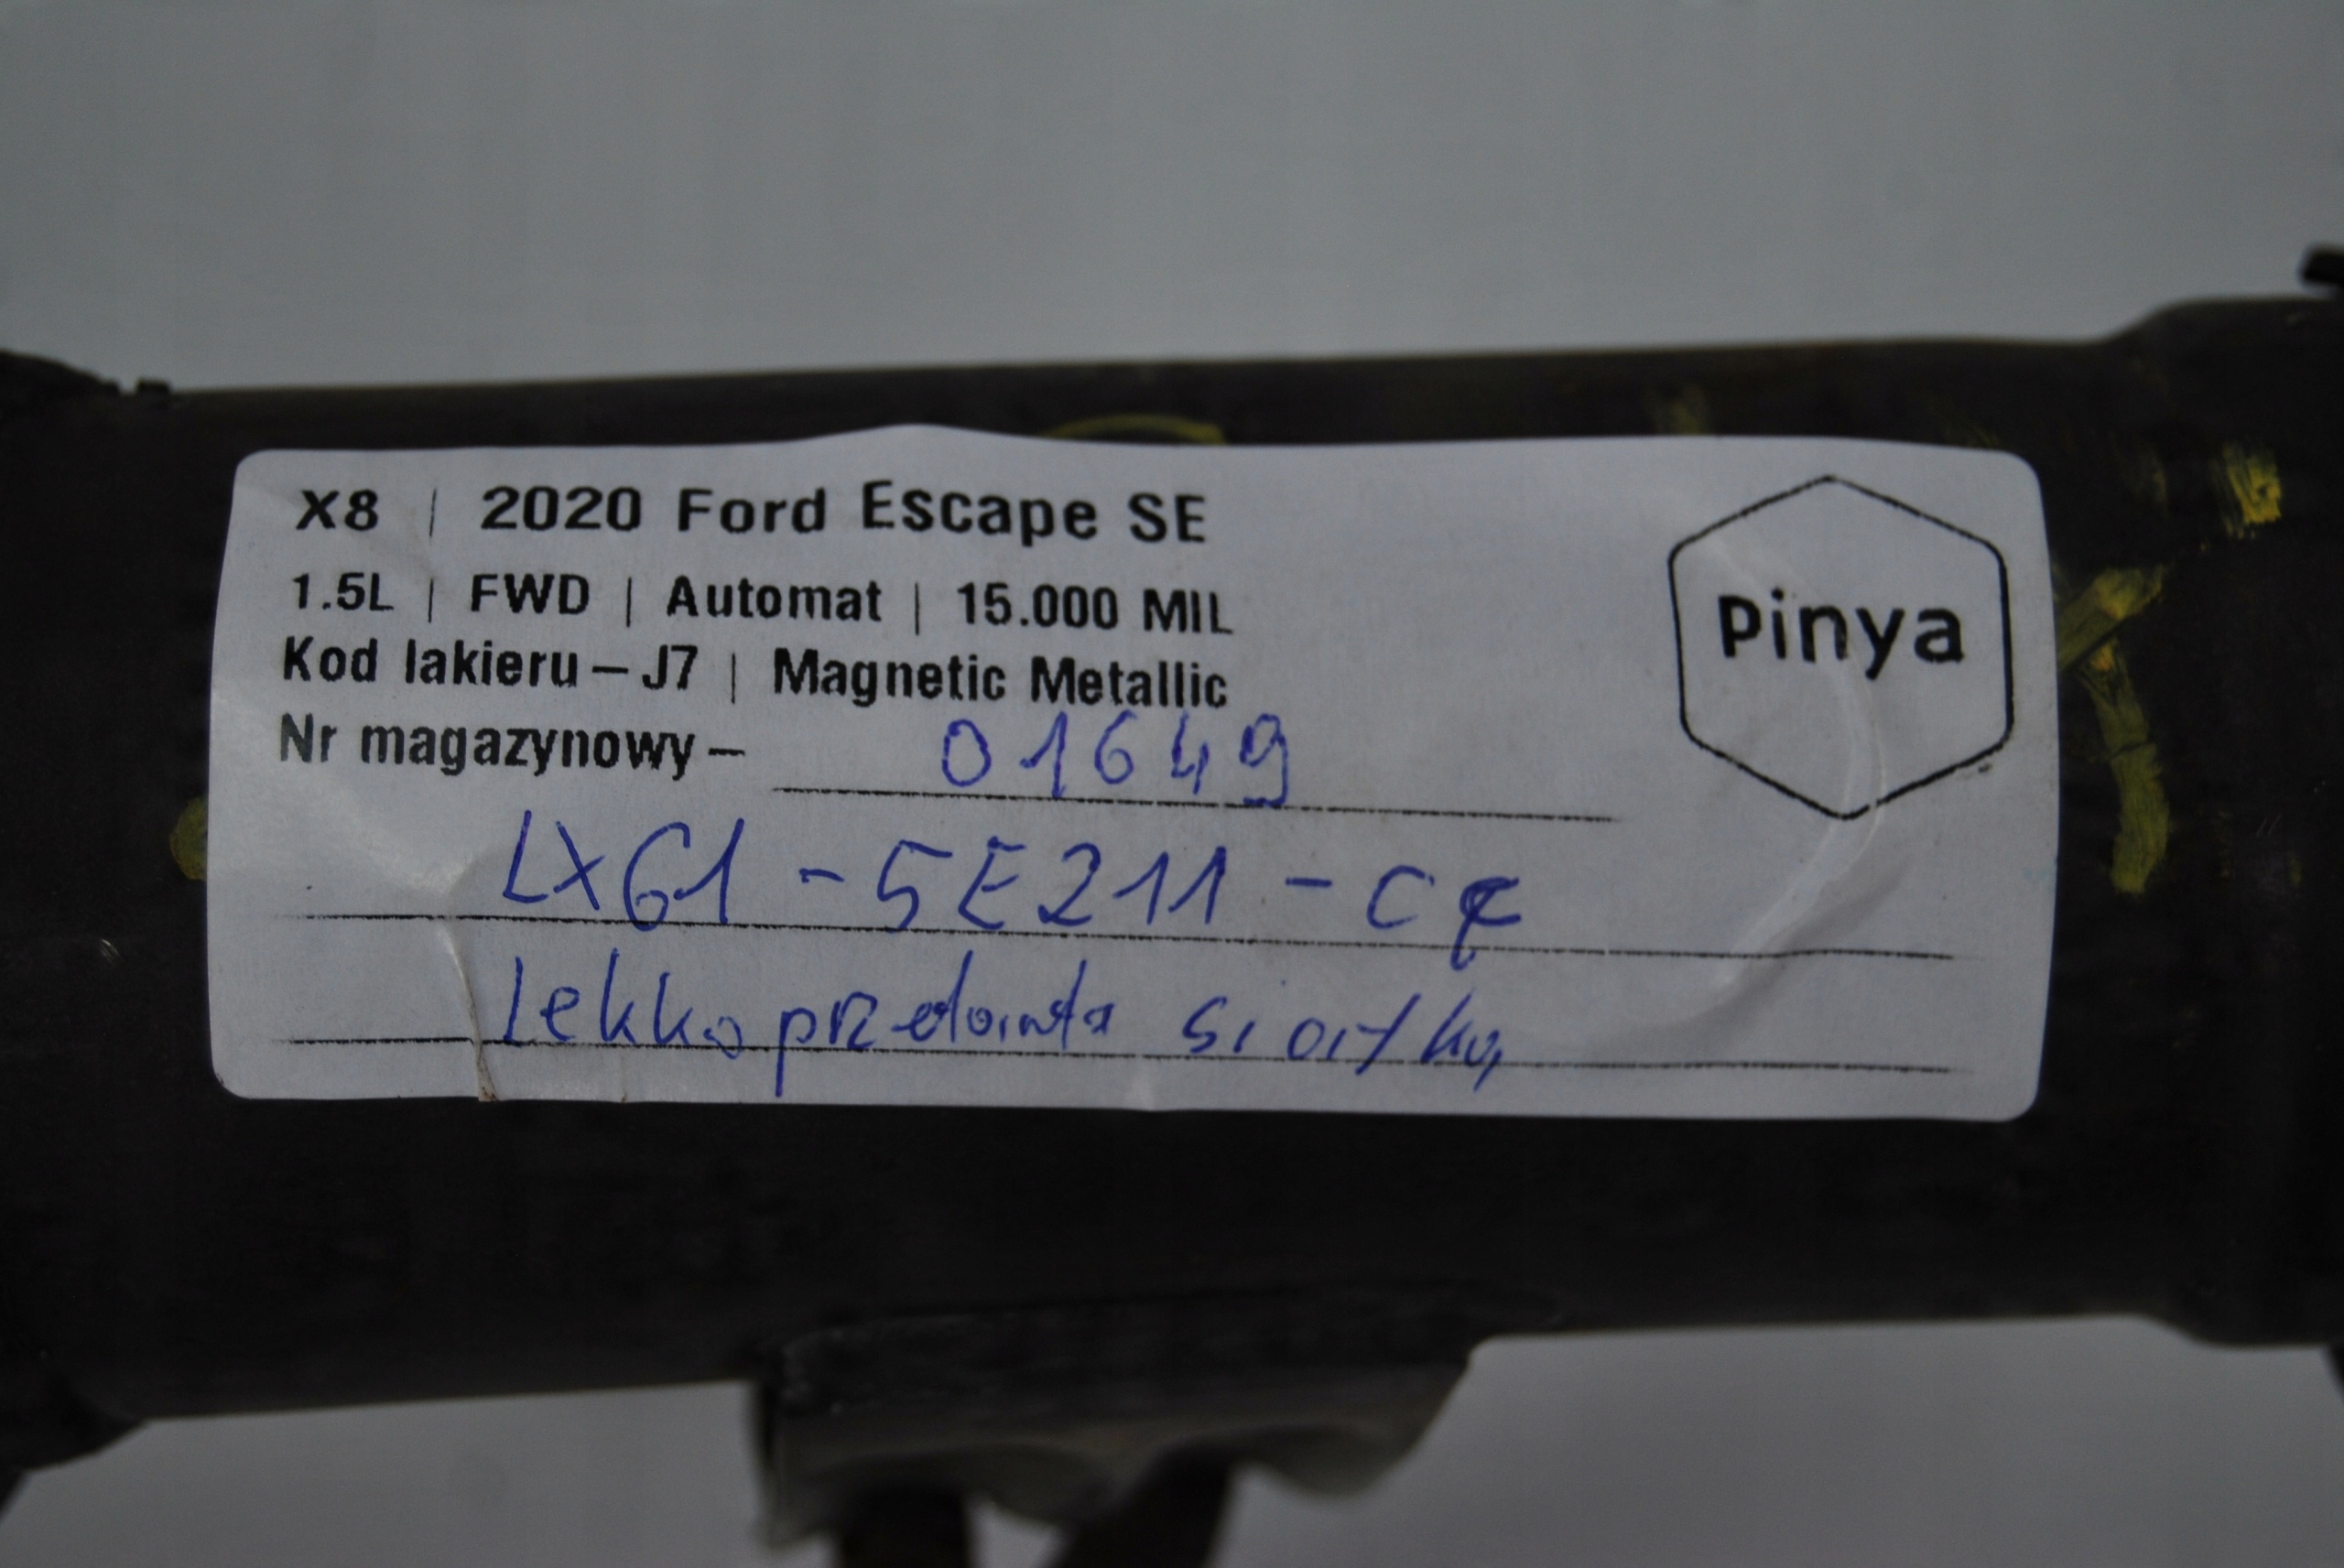 X8 | 2020 Ford Escape SE
1.5L | FWD | Automat | 15.000 MIL
Kod lakieru – J7 | Magnetic Metallic
Nr magazynowy – 01649
Pinya
LX61-5E211-C
Lekko